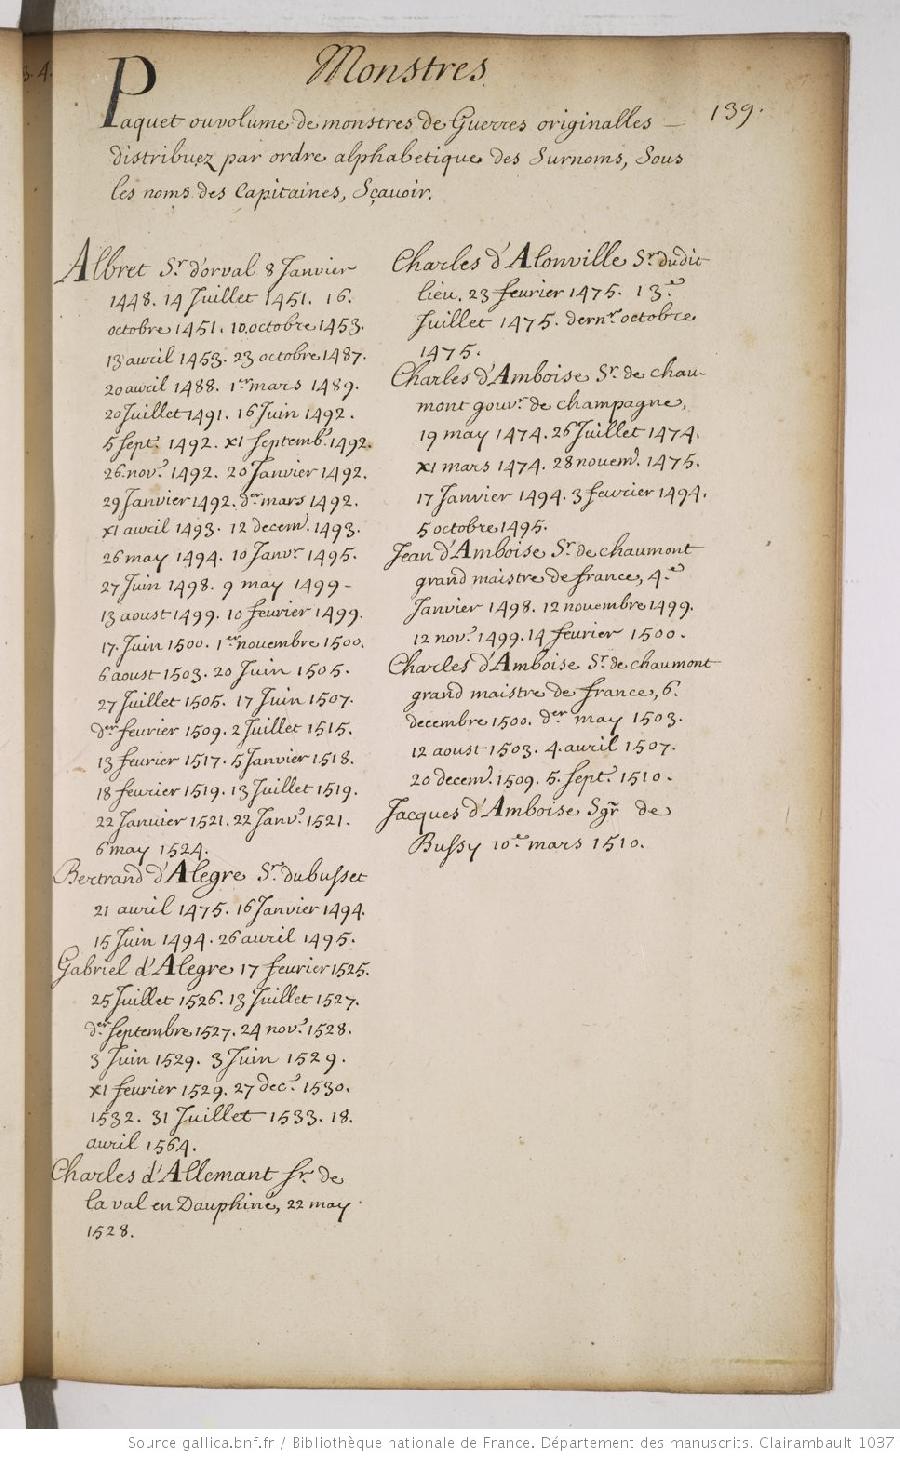 Monstres
139.
Paquet ou volume de monstres de Guerres originalles
distribuez par ordre alphabetique des Surnoms, Sous
les noms des Capitaines, Sçauoir.
Albret Sr. d'orval 8 Janvier
1448. 14 Juillet 1451. 16.
octobre 1451. 10. octobre 1453.
13 avril 1453. 23 octobre 1487.
20 avril 1488. 1er mars 1489.
20 Juillet 1491. 16 Juin 1492.
5 Sept. 1492. XI Septemb. 1492.
26. nov. 1492. 20 Janvier 1492.
29 Janvier 1492. der mars 1492.
XI avril 1493. 12 decem. 1493.
26 may 1494. 10 Janvr. 1495.
27 Juin 1498. 9 may 1499-
13 aoust 1499. 10 fevrier 1499.
17. Juin 1500. 1er novembre 1500.
6 aoust 1503. 20 Juin 1505.
27 Juillet 1505. 17 Juin 1507.
der fevrier 1509. 2 Juillet 1515.
13 fevrier 1517. 5 Janvier 1518.
18 fevrier 1519. 13 Juillet 1519.
22 Janvier 1521. 22 Janv. 1521.
6 may 1524.
Bertrand d'Alegre Sr. du busset
21 avril 1475. 16 Janvier 1494.
15 Juin 1494. 26 avril 1495.
Gabriel d'Alegre 17 fevrier 1525.
25 Juillet 1526. 13 Juillet 1527.
der Septembre 1527. 24 nov. 1528.
3 Juin 1529. 3 Juin 1529.
XI fevrier 1529. 27 dec. 1530.
1532. 31 Juillet 1533. 18.
avril 1564.
Charles d'Allemant Sr. de
la val en Dauphiné, 22 may
1528.
Charles d'Alonville Sr. dudit
lieu. 23 fevrier 1475. 13e
Juillet 1475. dernr. octobre
1475.
Charles d'Amboise Sr. de chau-
mont gouvr. de champagne,
19 may 1474. 26 Juillet 1474.
XI mars 1474. 28 novem. 1475.
17 Janvier 1494. 3 fevrier 1494.
5 octobre 1495.
Jean d'Amboise Sr. de chaumont
grand maistre de france, 4e
Janvier 1498. 12 novembre 1499.
12 nov. 1499. 14 fevrier 1500.
Charles d'Amboise Sr. de chaumont
grand maistre de france, 6.
decembre 1500. der may 1503.
12 aoust 1503. 4. avril 1507.
20 decem. 1509. 5. Sept. 1510.
Jacques d'Amboise Sgr de
Bussy 10e mars 1510.
Source gallica.bnf.fr / Bibliothèque nationale de France. Département des manuscrits. Clairambault 1037